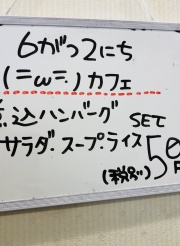 6がつ2にち
(=ω=.)カフェ
煮込ハンバーグ SET
サラダ・スープ・ライス
(税込)